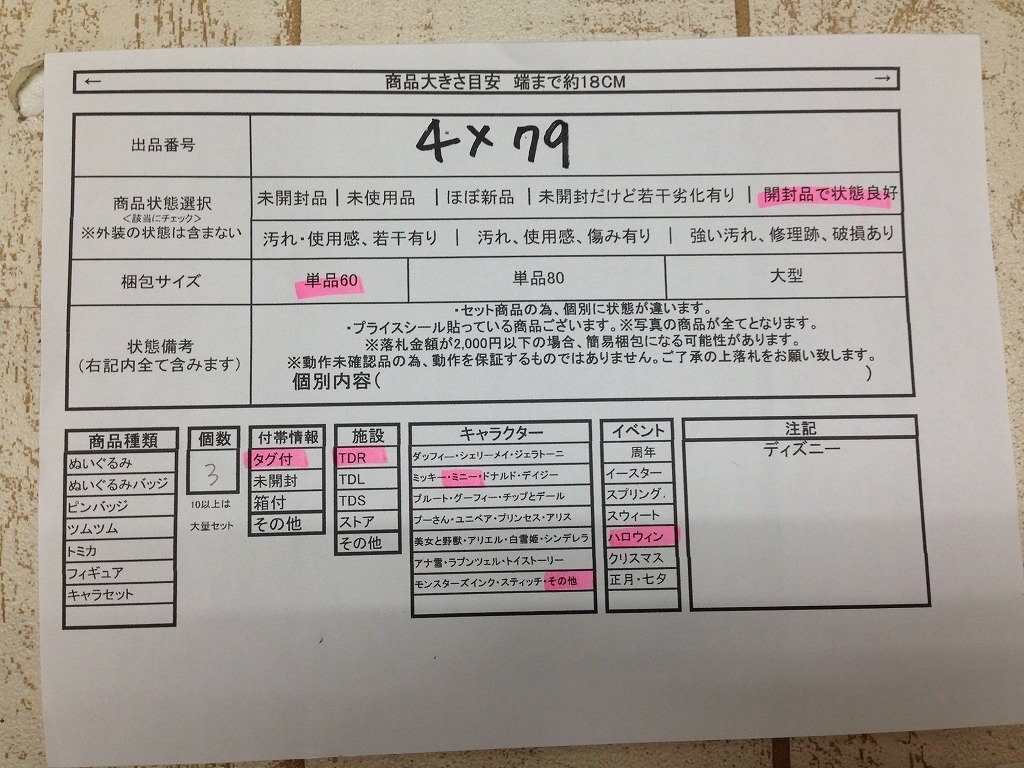 ← 商品大きさ目安 端まで約18CM →
出品番号 4×79
商品状態選択
<該当にチェック>
※外装の状態は含まない
未開封品 | 未使用品 | ほぼ新品 | 未開封だけど若干劣化有り | 開封品で状態良好
汚れ・使用感、若干有り | 汚れ、使用感、傷み有り | 強い汚れ、修理跡、破損あり
梱包サイズ 単品60 単品80 大型
状態備考
(右記内全て含みます)
・セット商品の為、個別に状態が違います。
・プライスシール貼っている商品ございます。※写真の商品が全てとなります。
※落札金額が2,000円以下の場合、簡易梱包になる可能性があります。
※動作未確認品の為、動作を保証するものではありません。ご了承の上落札をお願い致します。
個別内容( )
商品種類
ぬいぐるみ
ぬいぐるみバッジ
ピンバッジ
ツムツム
トミカ
フィギュア
キャラセット
個数
3
10以上は
大量セット
付帯情報
タグ付
未開封
箱付
その他
施設
TDR
TDL
TDS
ストア
その他
キャラクター
ダッフィー・シェリーメイ・ジェラトーニ
ミッキー・ミニー・ドナルド・デイジー
プルート・グーフィー・チップとデール
プーさん・ユニベア・プリンセス・アリス
美女と野獣・アリエル・白雪姫・シンデレラ
アナ雪・ラプンツェル・トイストーリー
モンスターズインク・スティッチ・その他
イベント
周年
イースター
スプリング.
スウィート
ハロウィン
クリスマス
正月・七夕
注記
ディズニー